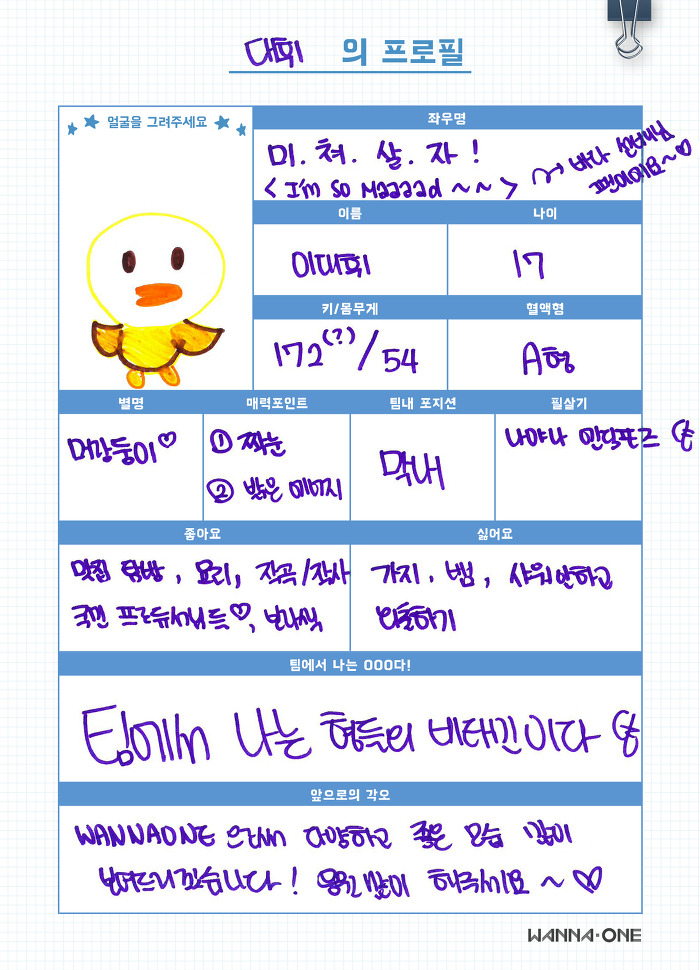 대휘 의 프로필
얼굴을 그려주세요
좌우명
미.쳐.살.자!
< I'm so Maaaad ~~ >
바다 선배님
팬이에요~♡
이름
나이
이대휘
17
키/몸무게
혈액형
172(?)/54
A형
별명
매력포인트
팀내 포지션
필살기
머랑둥이♡
① 짝눈
② 밝은 이미지
막내
나야나 엔딩포즈
좋아요
싫어요
맛집 탐방, 요리, 작곡/작사
국민 프로듀서님들♡,
가지, 뱀, 샤워안하고
외출하기
팀에서 나는 OOO다!
팀에서 나는 형들의 비타민이다
앞으로의 각오
WANNAONE 으로써 다양하고 좋은 모습 많이
보여드리겠습니다! 응원 많이 해주세요 ~ ♡
WANNA·ONE